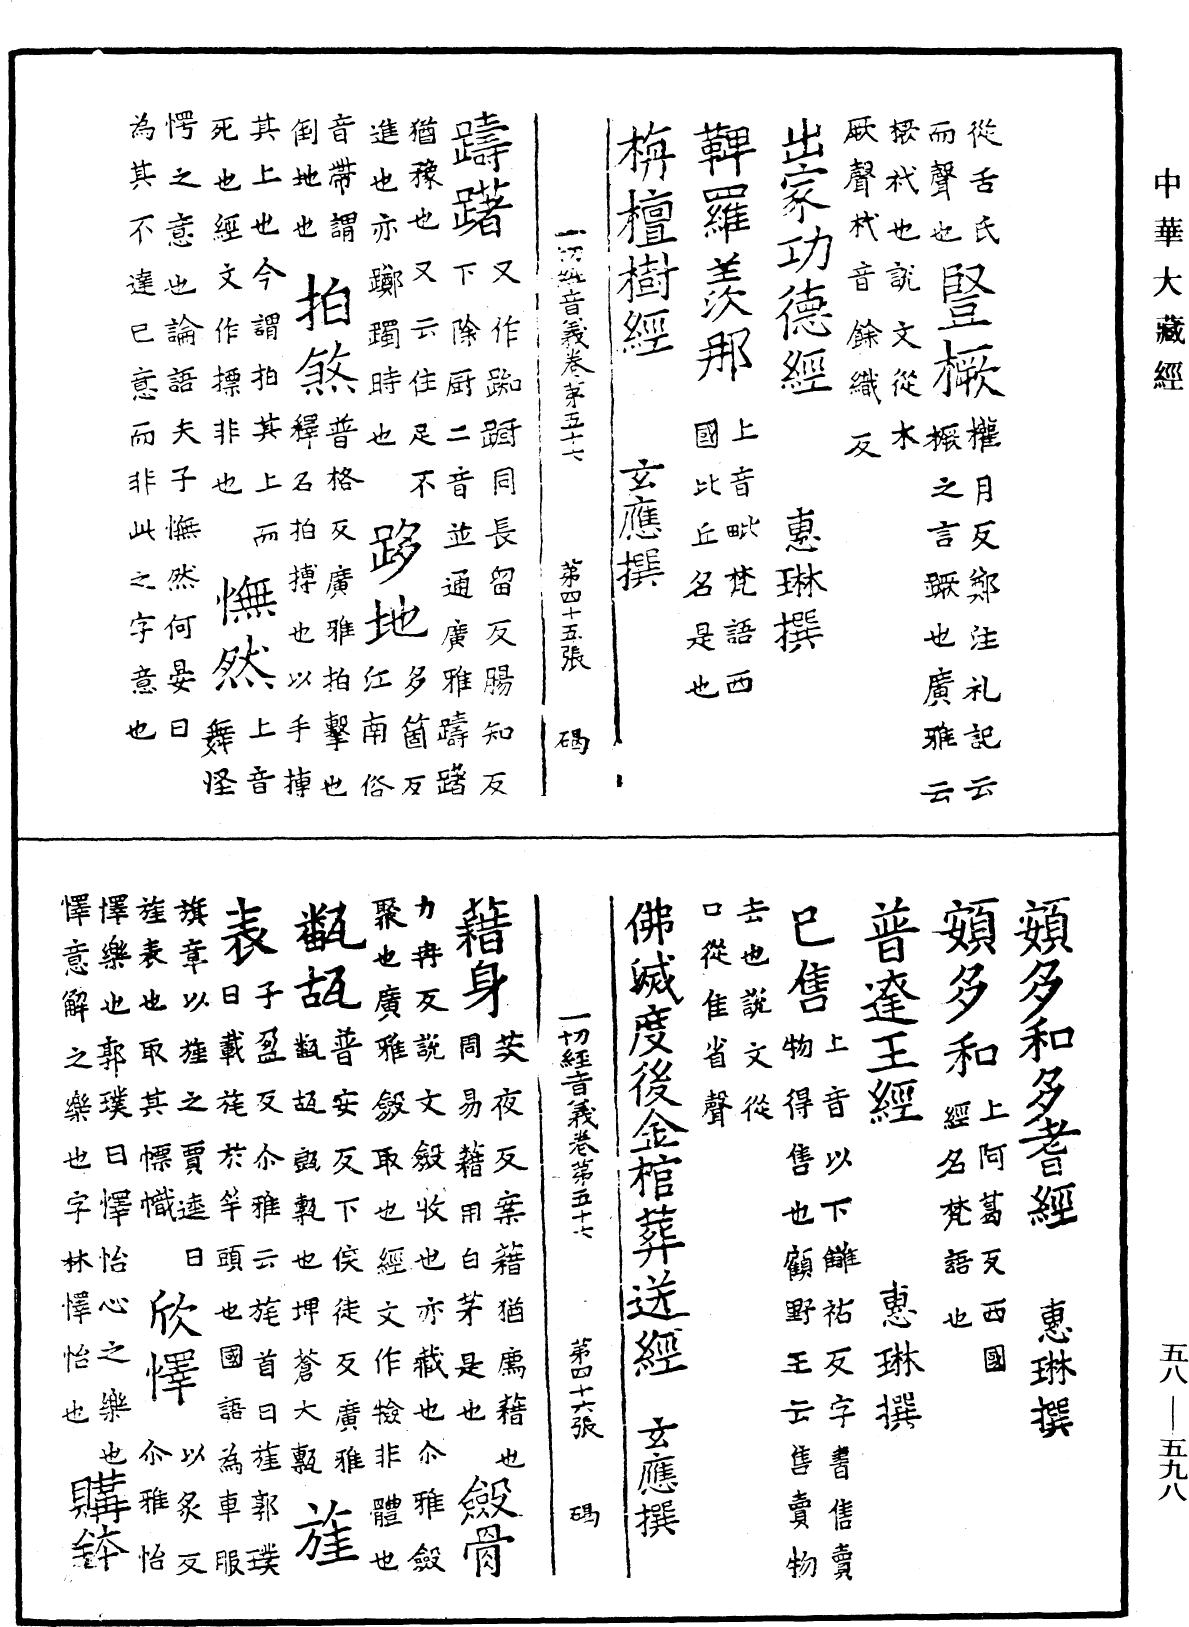 中華大藏經
從舌氏
而聲也豎橛權月反鄭注礼記云
橛杙也説文從木橛之言蹶也廣雅云
厥聲杙音餘織反
出家功德經 惠琳撰
鞞羅羨那上音毗梵語西
國比丘名是也
栴檀樹經 玄應撰
一切經音義卷第五十七 第四十五張 碣
躊躇又作跏蹰同長留反腸知反
下除厨二音並通廣雅躊躇
猶豫也又云住足不
進也亦躑躅時也跢地多箇反
江南俗
音帶謂
倒地也拍煞普格反廣雅拍擊也
釋名拍搏也以手搏
其上也今謂拍其上而
死也經文作摽非也憮然上音
舞怪
愕之意也論語夫子憮然何晏曰
為其不達已意而非此之字意也
頞多和多耆經 惠琳撰
頞多和上阿葛反西國
經名梵語也
普達王經 惠琳撰
已售上音以下讎祐反字書售賣
物得售也顧野王云售賣物
去也説文從
口從隹省聲
佛滅度後金棺葬送經 玄應撰
一切經音義卷第五十七 第四十六張 碣
藉身茨夜反案藉猶薦藉也
同易藉用白茅是也斂骨
力冉反説文斂收也亦藏也尒雅斂
聚也廣雅斂取也經文作撿非體也
㽃瓳普安反下侯徒反廣雅
㽃瓳甎也埤蒼大甎旌
表子盈反尒雅云旄首曰旌郭璞
曰載旄於竿頭也國語為車服
旗章以旌之賈逵曰
旌表也取其慓幟欣懌以炙反
尒雅怡
懌樂也郭璞曰懌怡心之樂也
懌意解之樂也字林懌怡也購鉢
五八—五九八